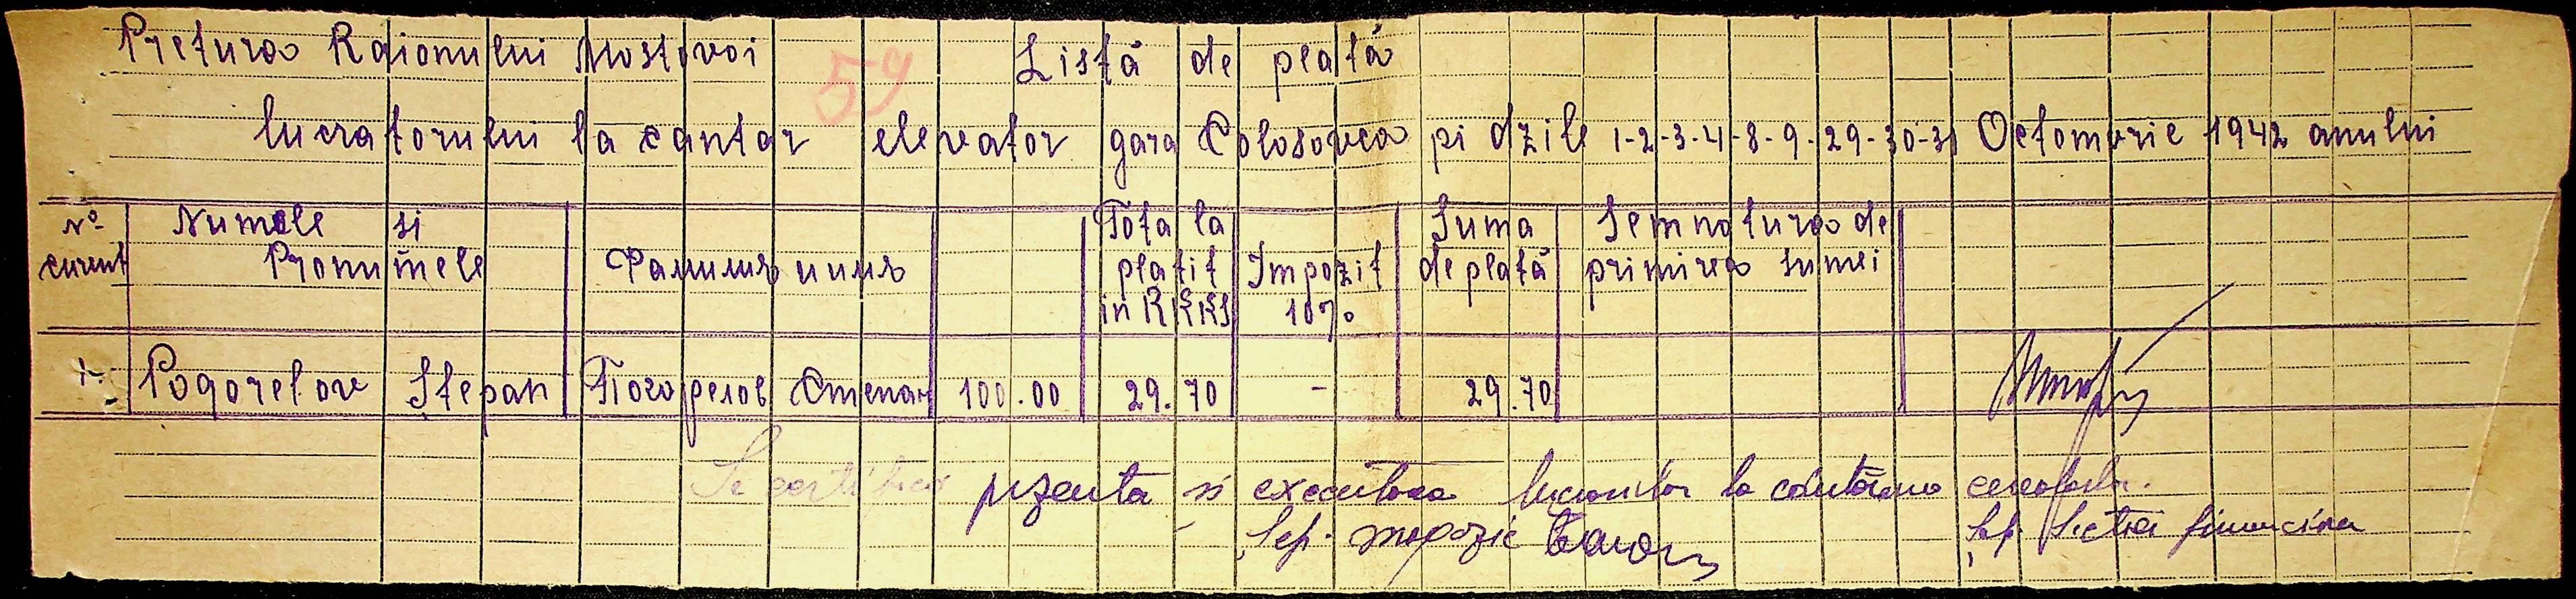 Pretura Raionului Mostovoi 59 Listă de plată
lucratorului la cantar elevator gara Colosovca pi dzile 1-2-3-4-8-9-29-30-31 Octombrie 1942 anului
№ curent
Numele si Pronumele
Фамилия и имя
Tota la platit in RKKS
Impozit 10%
Suma de plată
Semnatura de primirea sumei
1. Pogorelov Stepan Погорелов Степан 100.00 29.70 - 29.70
Se certifica prezenta si executarea lucrarilor la cântărirea cerealelor.
Șef. magazie
Șef. Sectiei financiara